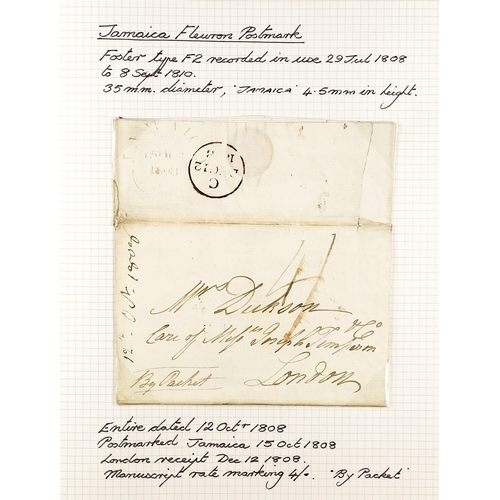 Jamaica Fleuron Postmark
Foster type F2 recorded in use 29 Jul 1808
to 8 Sept 1810.
35 mm. diameter, 'JAMAICA' 4.5mm in height.
C
12
8
12th Oct 1808
Mrs Dickson
Care of Messrs Joseph Timperon & Co
London
By Packet
Entire dated 12 Octr 1808
Postmarked Jamaica 15 Oct 1808
London receipt Dec 12 1808.
Manuscript rate marking 4/-. 'By Packet'